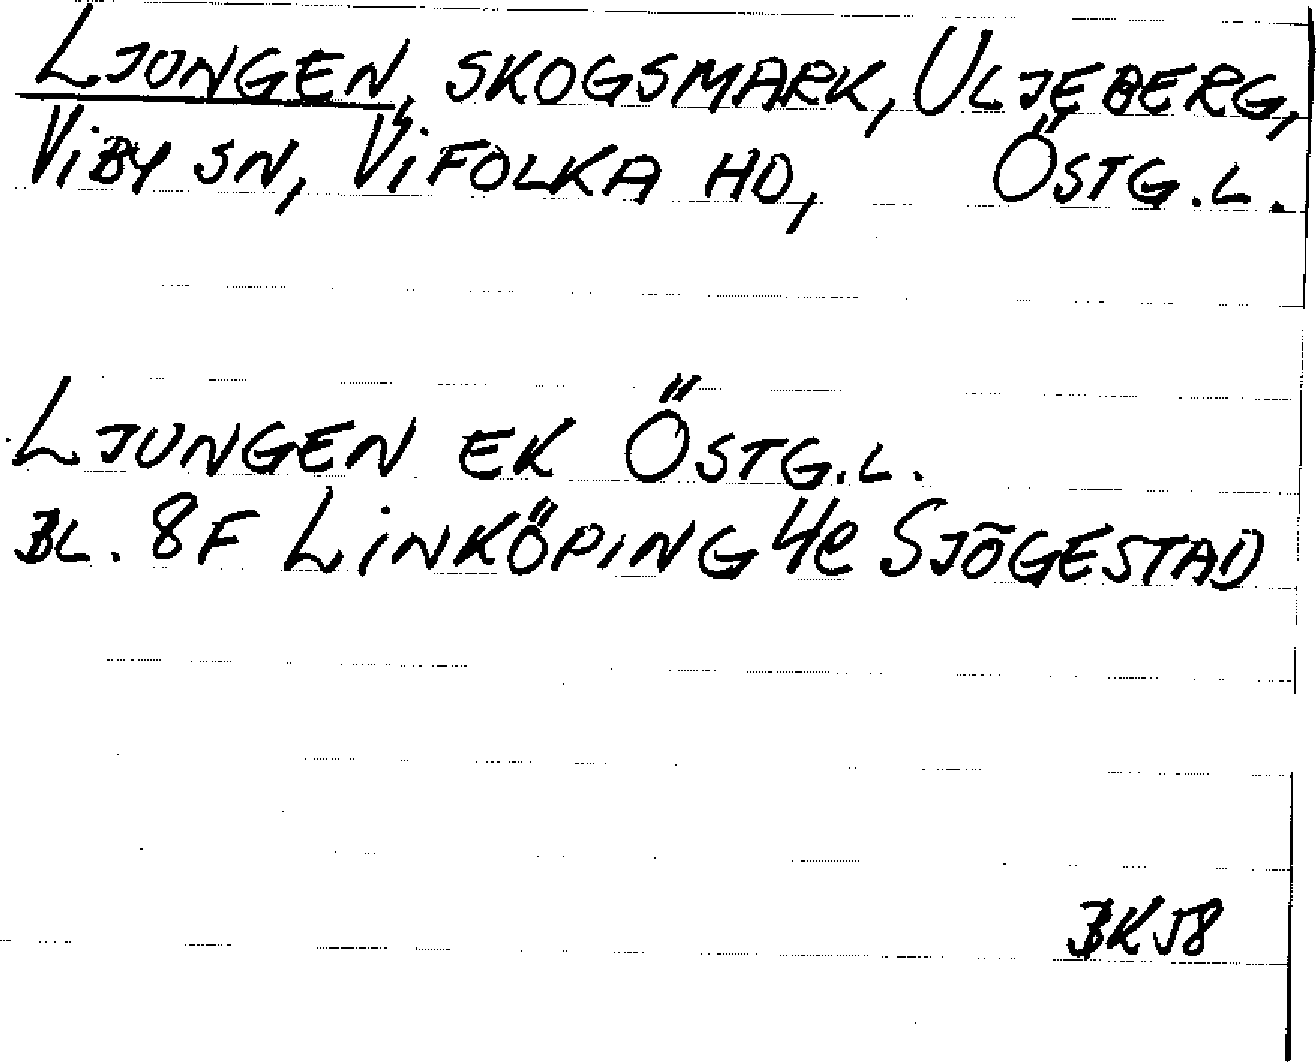 LJUNGEN, SKOGSMARK, ULJEBERG,
VIBY SN, VIFOLKA HD, ÖSTG.L.
LJUNGEN EK ÖSTG.L.
BL. 8F LINKÖPING 4e SJÖGESTAD
BKJ8